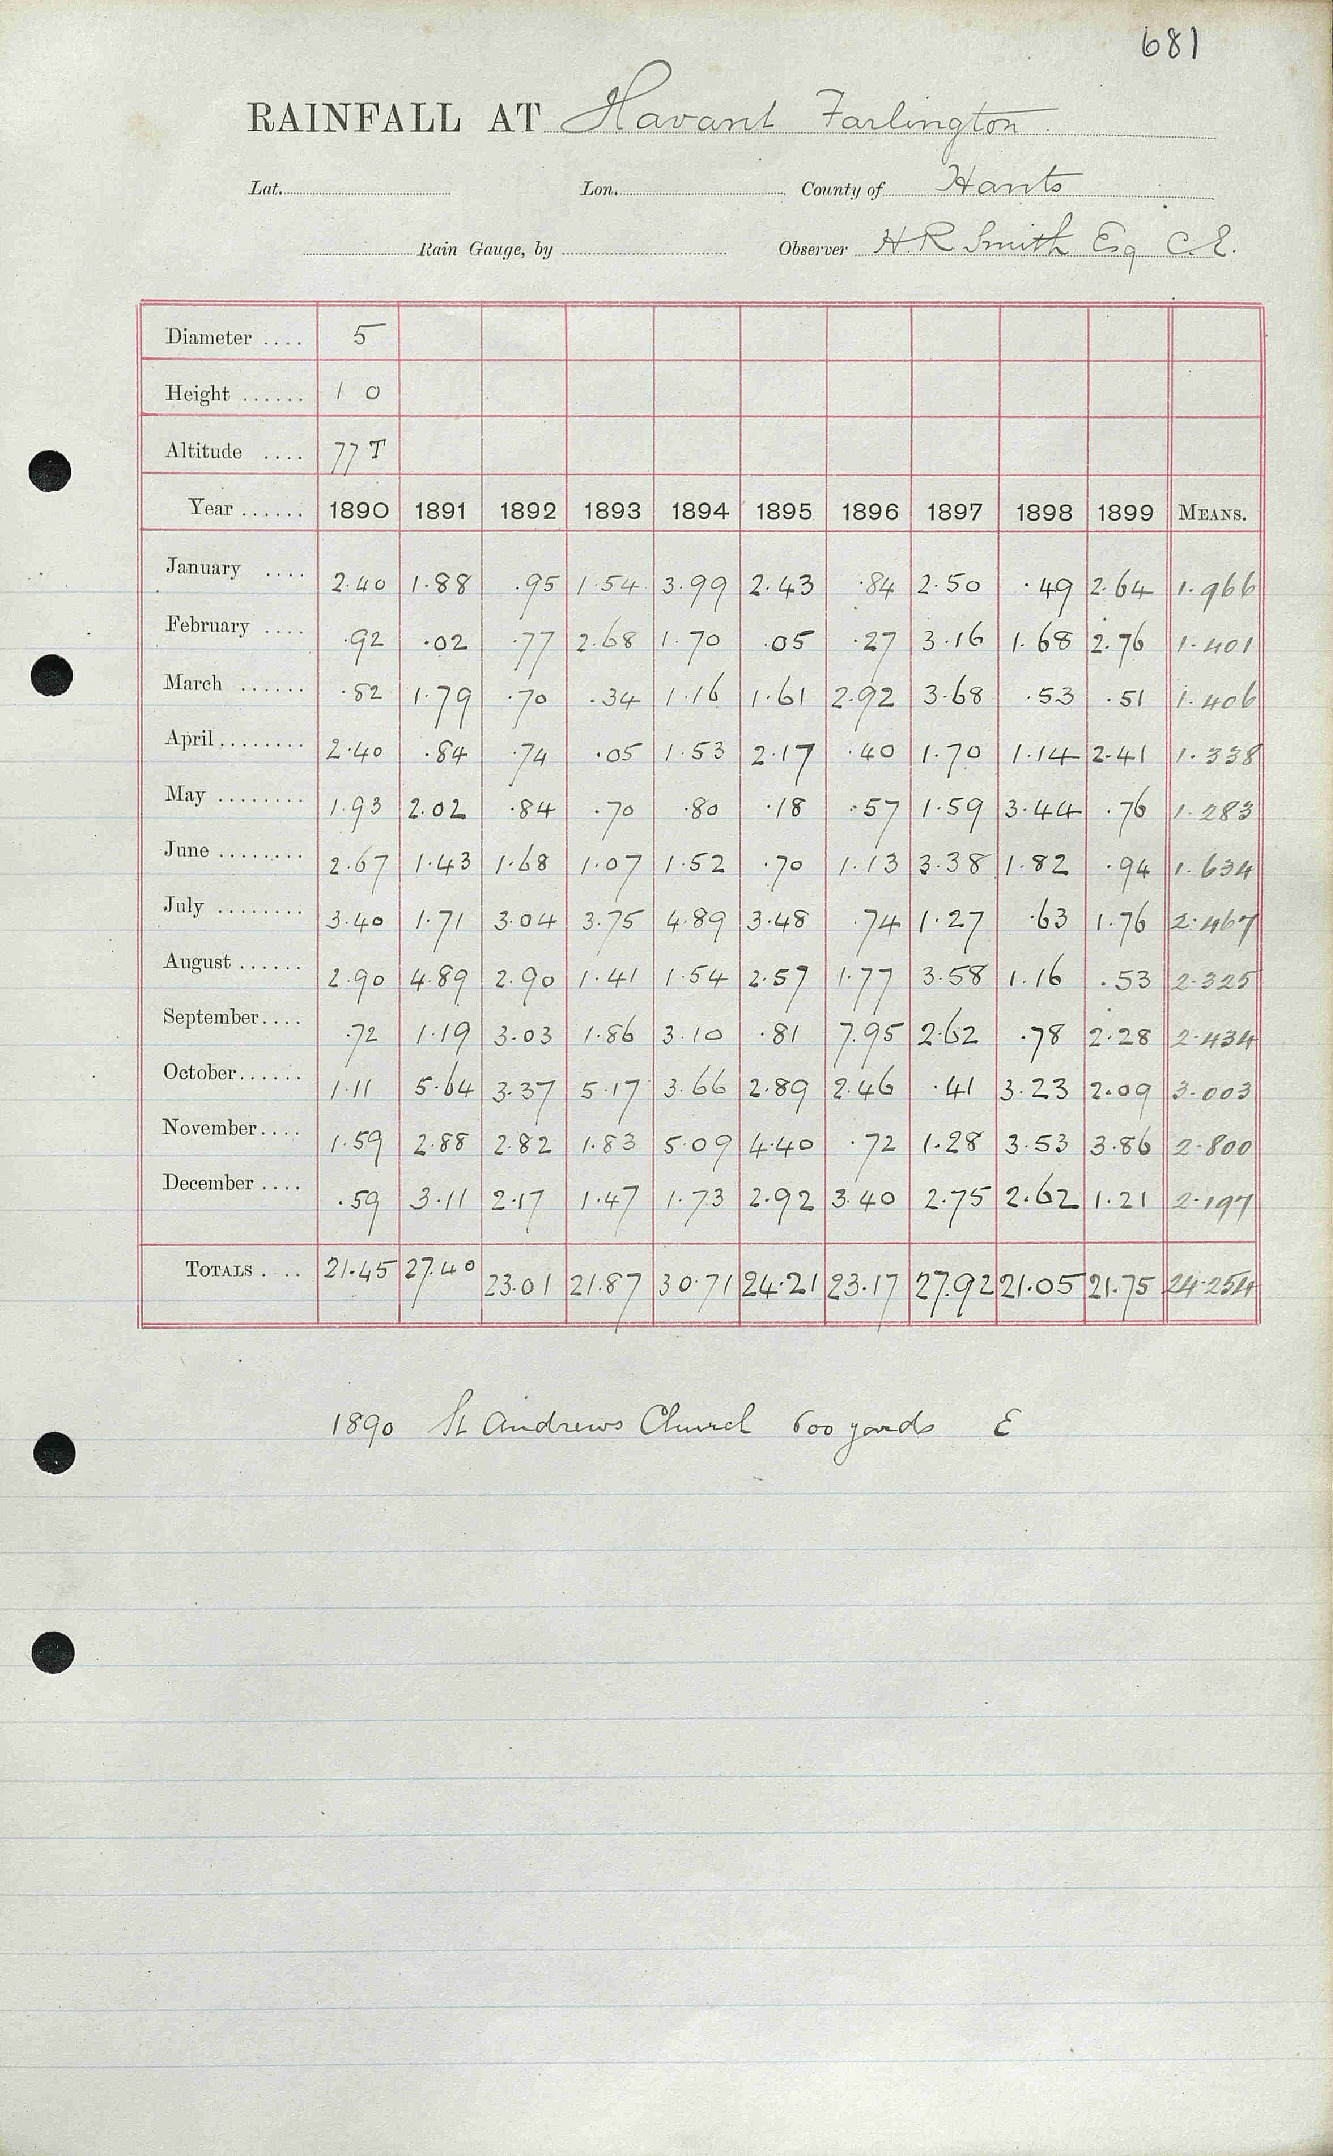 681
RAINFALL AT Havant Farlington
Lat. Lon. County of Hants
Rain Gauge, by Observer H. R Smith Esq C.E.
Diameter .... 5
Height ...... 1 0
Altitude .... 77 T
Year ...... 1890 1891 1892 1893 1894 1895 1896 1897 1898 1899 MEANS.
January .... 2.40 1.88 .95 1.54 3.99 2.43 .84 2.50 .49 2.64 1.966
February .... .92 .02 .77 2.68 1.70 .05 .27 3.16 1.68 2.76 1.401
March ...... .82 1.79 .70 .34 1.16 1.61 2.92 3.68 .53 .51 1.406
April ........ 2.40 .84 .74 .05 1.53 2.17 .40 1.70 1.14 2.41 1.338
May ........ 1.93 2.02 .84 .70 .80 .18 .57 1.59 3.44 .76 1.283
June ........ 2.67 1.43 1.68 1.07 1.52 .70 1.13 3.38 1.82 .94 1.634
July ........ 3.40 1.71 3.04 3.75 4.89 3.48 .74 1.27 .63 1.76 2.467
August ...... 2.90 4.89 2.90 1.41 1.54 2.57 1.77 3.58 1.16 .53 2.325
September .... .72 1.19 3.03 1.86 3.10 .81 7.95 2.62 .78 2.28 2.434
October ...... 1.11 5.64 3.37 5.17 3.66 2.89 2.46 .41 3.23 2.09 3.003
November .... 1.59 2.88 2.82 1.83 5.09 4.40 .72 1.28 3.53 3.86 2.800
December .... .59 3.11 2.17 1.47 1.73 2.92 3.40 2.75 2.62 1.21 2.197
TOTALS .... 21.45 27.40 23.01 21.87 30.71 24.21 23.17 27.92 21.05 21.75 24.254
1890 St Andrews Church 600 yards E